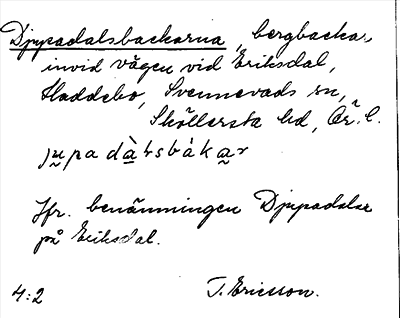 Djupadalsbackarna, bergbackar,
invid vägen vid Eriksdal,
Haddebo, Svennevads sn,
Sköllersta hd, Ör. l.
Jfr. benämningen Djupadalar
på Eriksdal.
4:2 T. Ericsson.